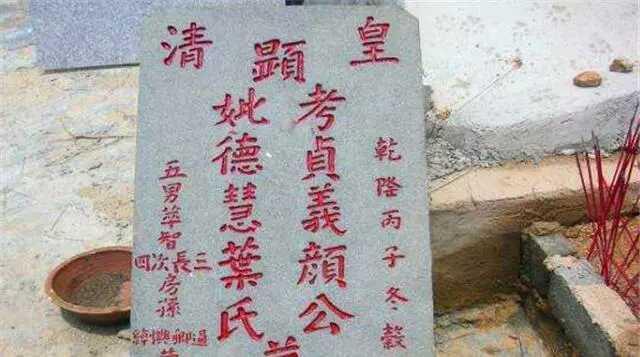 皇清
乾隆丙子冬穀
顯
考貞義顏公
妣德慧葉氏
五男華智
三長次四
房孫